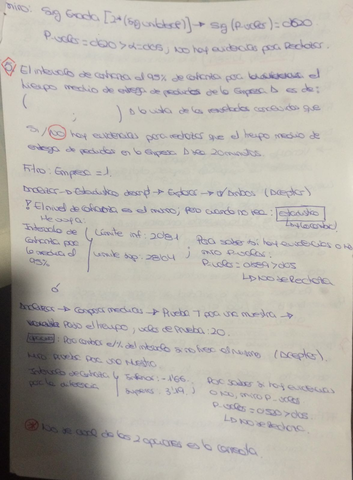 miro: Sig Exacta [2*(Sig unilateral)] → Sig (P.valor) = 0'620
P.valor = 0'620 > α = 0'05, No hay evidencias para Rechazar.
El intervalo de confianza al 95% de confianza para el
tiempo medio de entrega de productos de la Empresa A es de:
( ; ) A la vista de los resultados concluidos que
Si / NO hay evidencias para rechazar que el tiempo medio de
entrega de productos en la Empresa A sea 20 minutos.
Filtro: Empresa = 1.
Analizar → Estadísticos descript → Explorar → (Aceptar)
El nivel de confianza es el mismo, pero cuando no sea: estadísticos
Me voy a:
Intervalo de
confianza para
la media al
95%
Límite inf:
Límite sup:
Para saber si hay evidencias o No
miro P.valor:
P.valor = > 0'05
↳ No se Rechaza
ó
Analizar → Comparar medias → Prueba T para una muestra →
Paso el tiempo, valor de Prueba 20.
Para cambiar el % del intervalo si no fuese el mismo (Aceptar).
Miro Prueba para una Muestra.
Intervalo de Confianza
para la diferencia
Inferior: -1'66
Superior:
Para saber si hay evidencias
o No, miro P.valor
P.valor = > 0'05
↳ No se Rechaza.
No se cual de las 2 opciones es la correcta